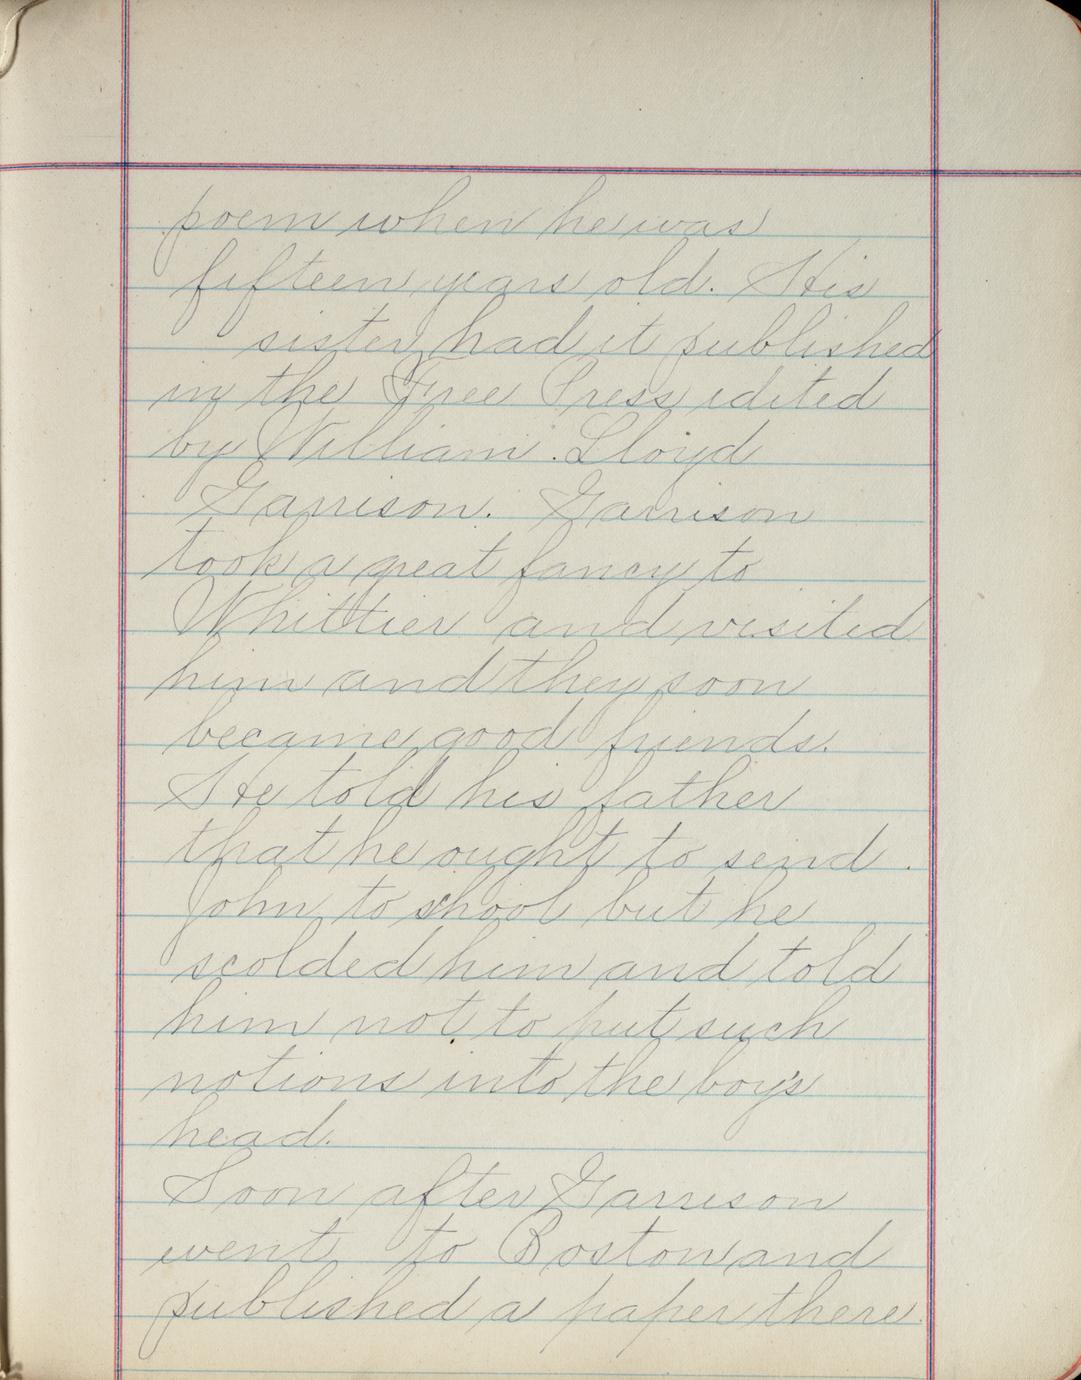 poem when he was
fifteen years old. His
sister had it published
in the Free Press edited
by William Lloyd
Garrison. Garrison
took a great fancy to
Whittier and visited
him and they soon
became good friends.
He told his father
that he ought to send
John to school but he
scolded him and told
him not to put such
notions into the boy's
head.
Soon after Garrison
went to Boston and
published a paper there.